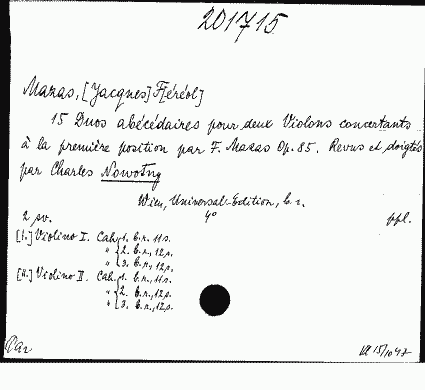 201715
Mazas, [Jacques] F[éréol]
15 Duos abécédaires pour deux Violons concertants
à la première position par F. Mazas Op. 85. Revus et doigtés
par Charles Nowotny
Wien, Universal-Edition, b. r.
2 sv. 4° ppl.
[I.] Violino I. Cah. 1. b.r. 11 s.
" 2. b.r., 12 s.
" 3. b.r., 12 s.
[II.] Violino II. Cah. 1. b.r., 11 s.
" 2. b.r., 12 s.
" 3. b.r., 12 s.
15/10 47